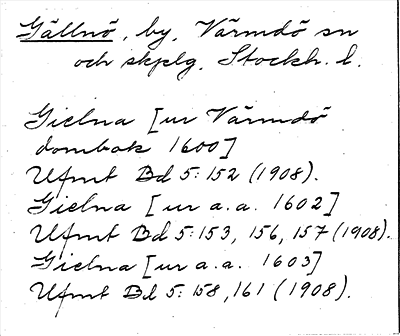 Gällnö, by, Värmdö sn
och skplg, Stockh. l.
Gielna [ur Värmdö
dombok 1600]
Ufmt Bd 5:152 (1908).
Gielna [ur a.a. 1602]
Ufmt Bd 5:153, 156, 157 (1908).
Gielna [ur a.a. 1603]
Ufmt Bd 5:158, 161 (1908).